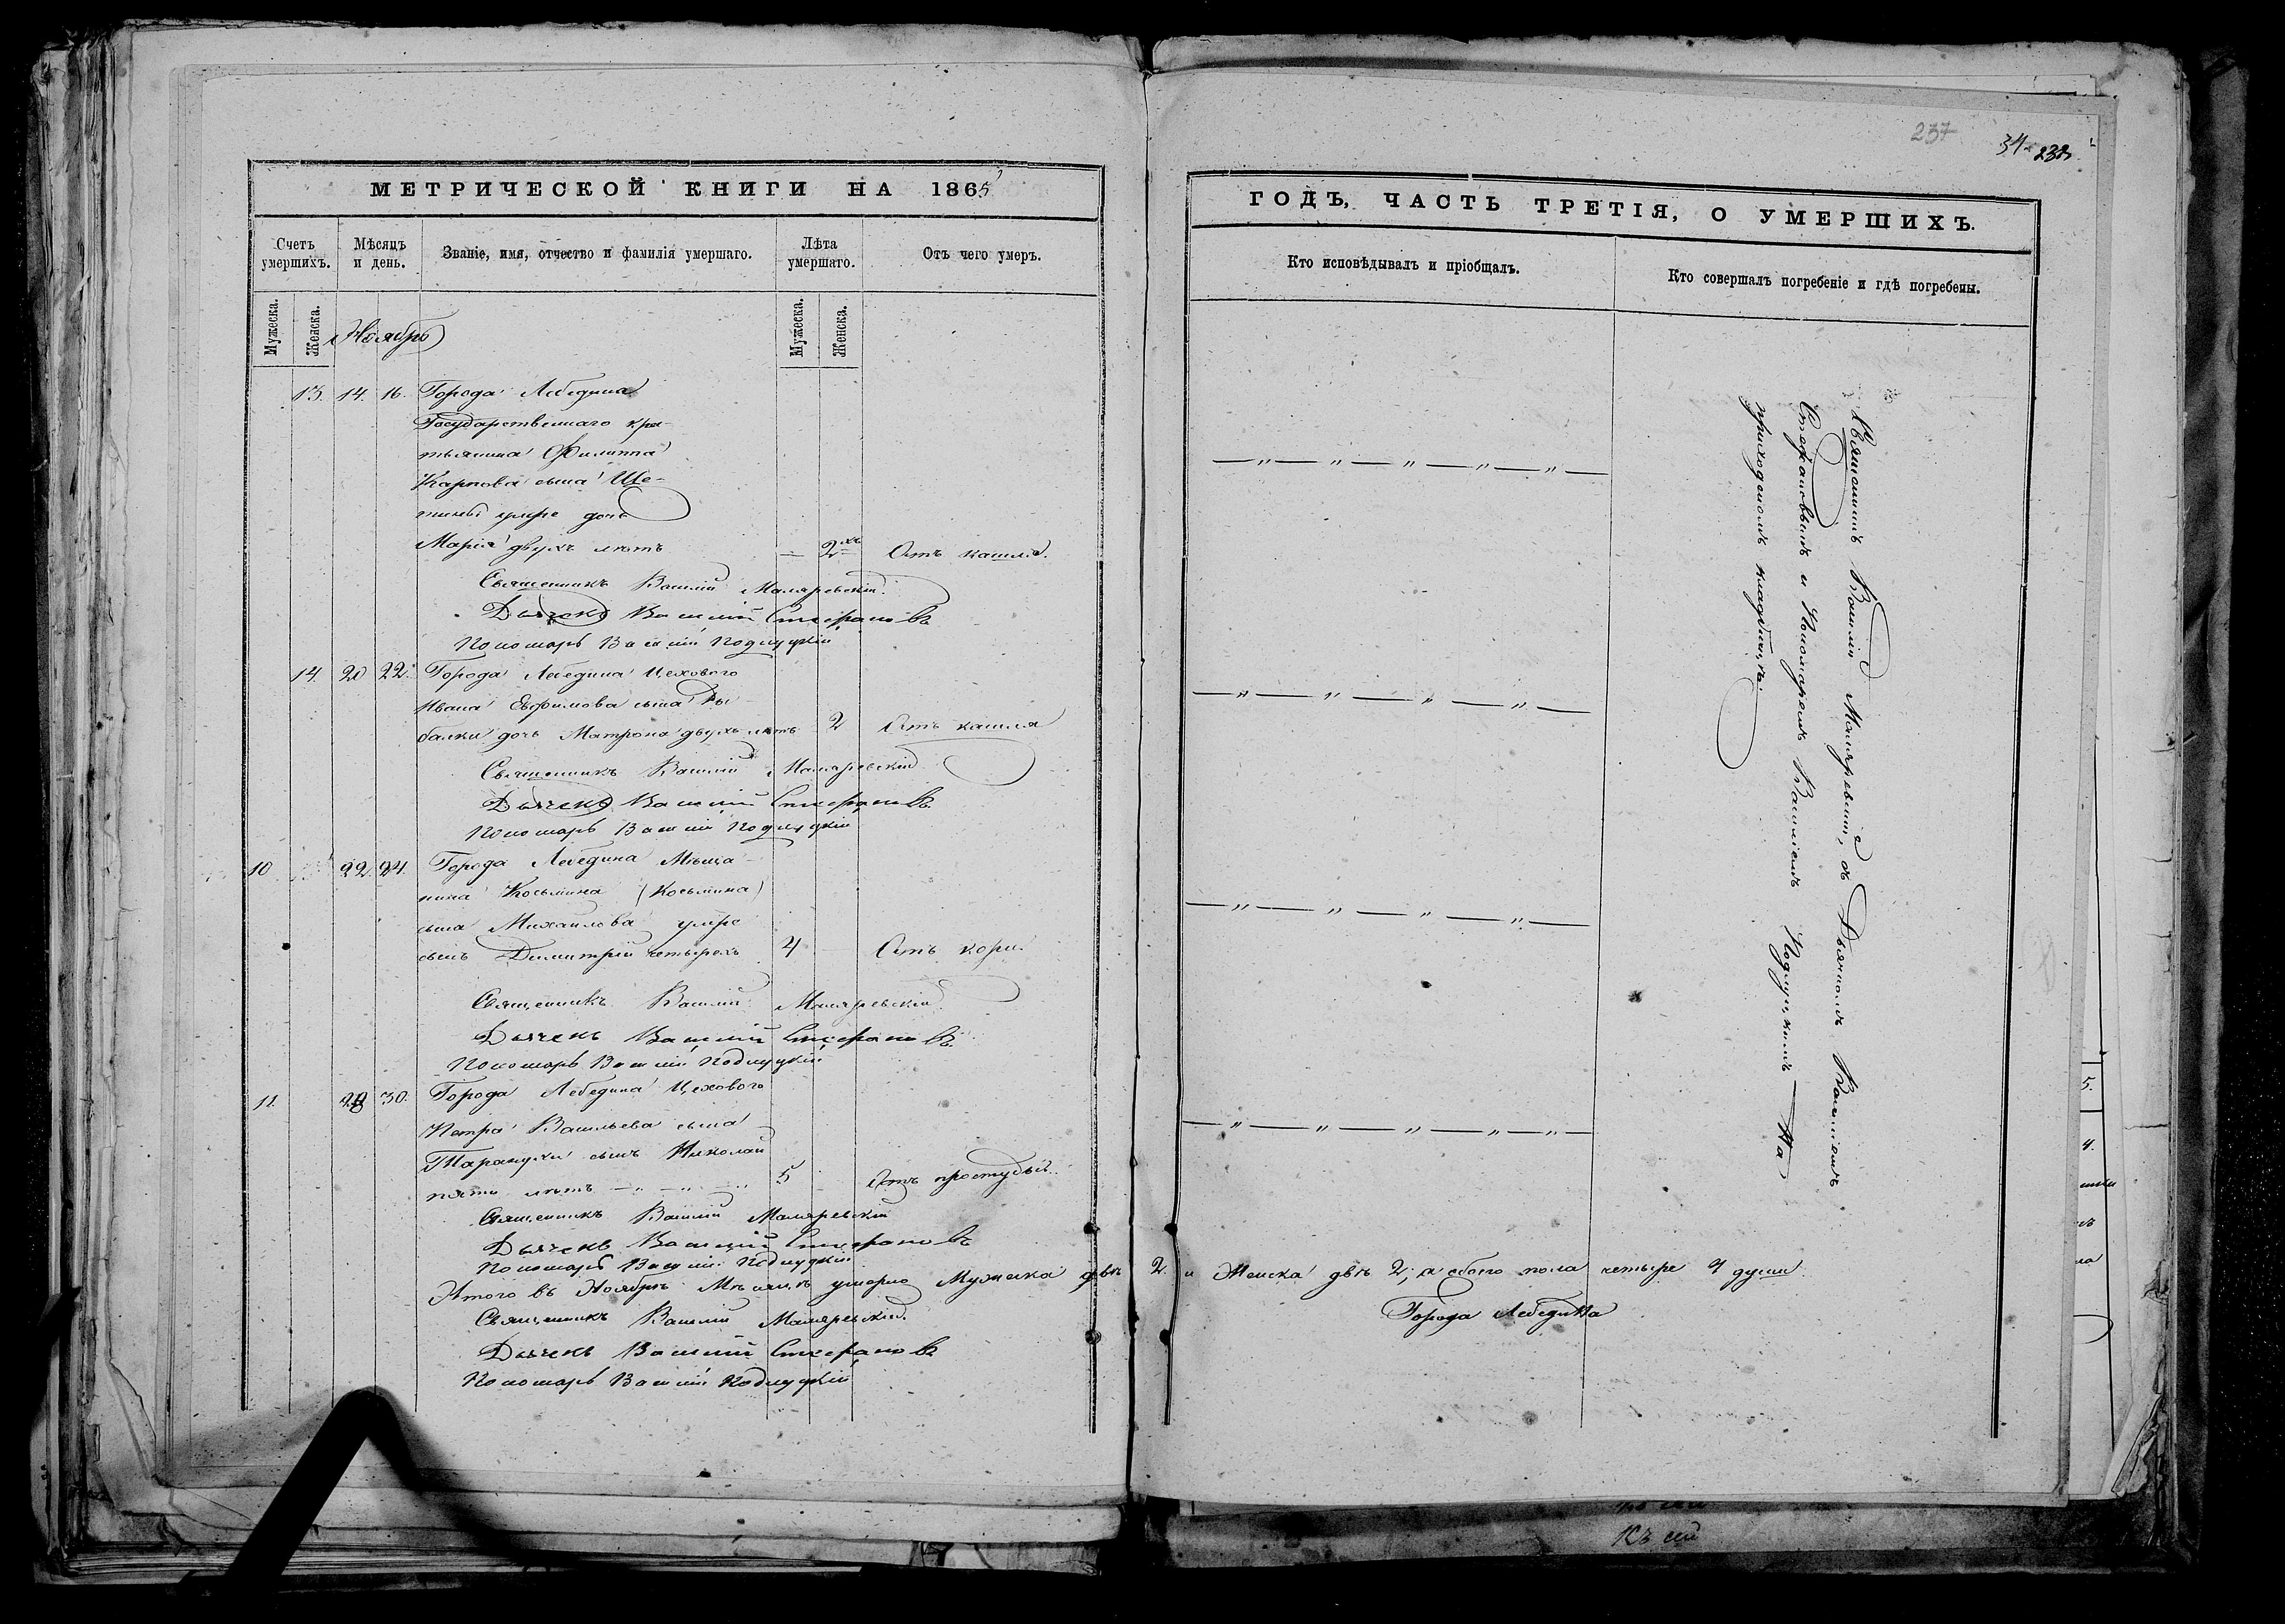 МЕТРИЧЕСКОЙ КНИГИ НА 1865
Счетъ умершихъ.
Мѣсяцъ и день.
Званіе, имя, отчество и фамилія умершаго.
Лѣта умершаго.
Отъ чего умеръ.
Мужеска.
Женска.
Ноябрь
Мужеска.
Женска.
13. 14. 16. Города Лебедина
Государственнаго кре-
стьянина Филиппа
Карпова сына Ще-
тины умре дочь
Марія двухъ лѣтъ — 2хъ Отъ кашля.
Священникъ Василій Маляревскій.
Дьячекъ Василій Стефановъ
Пономарь Василій Подлуцкій
14. 20 22. Города Лебедина Цеховаго
Ивана Ефимова сына Ры-
балки дочь Матрона двухъ лѣтъ 2 Отъ кашля
Священникъ Василій Маляревскій
Дьячекъ Василій Стефановъ.
Пономарь Василій Подлуцкій
10 22. 24. Города Лебедина Мѣща-
нина Косьмина (Косьмина)
сына Михаилова умре
сынъ Димитрій четырехъ 4 Отъ кори.
Священникъ Василій Маляревскій
Дьячекъ Василій Стефановъ.
Пономарь Василій Подлуцкій
11. 28 30. Города Лебедина Цеховаго
Петра Васильева сына
сынъ Николай
пять лѣтъ — „ — „ — „ 5 Отъ простуды.
Священникъ Василій Маляревскій
Дьячекъ Василій Стефановъ
Пономарь Василій Подлуцкій
Итого въ Ноябрѣ Мѣсяцѣ умерло Мужеска двѣ 2. и Женска двѣ 2, а обоего пола четыре 4 души.
Священникъ Василій Маляревскій.
Города Лебедина
Дьячекъ Василій Стефановъ
Пономарь Василій Подлуцкій
237
34
ГОДЪ, ЧАСТЬ ТРЕТІЯ, О УМЕРШИХЪ.
Кто исповѣдывалъ и пріобщалъ.
Кто совершалъ погребеніе и гдѣ погребены.
— „ — „ — „ — „ — „ —
— „ — „ — „ — „ —
— „ — „ — „ — „ —
— „ — „ — „ — „ — „ —
Священникъ Василій Маляревскій, съ Дьячкомъ Василіемъ
Стефановымъ и Пономаремъ Василіемъ Подлуцкимъ — На
приходскомъ кладбищѣ.
5.
4.
Къ сей